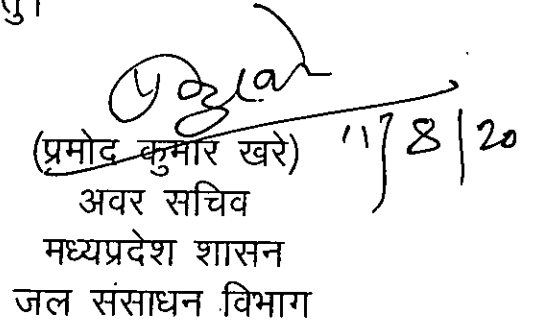 तु।
(प्रमोद कुमार खरे) 11/8/20
अवर सचिव
मध्यप्रदेश शासन
जल संसाधन विभाग